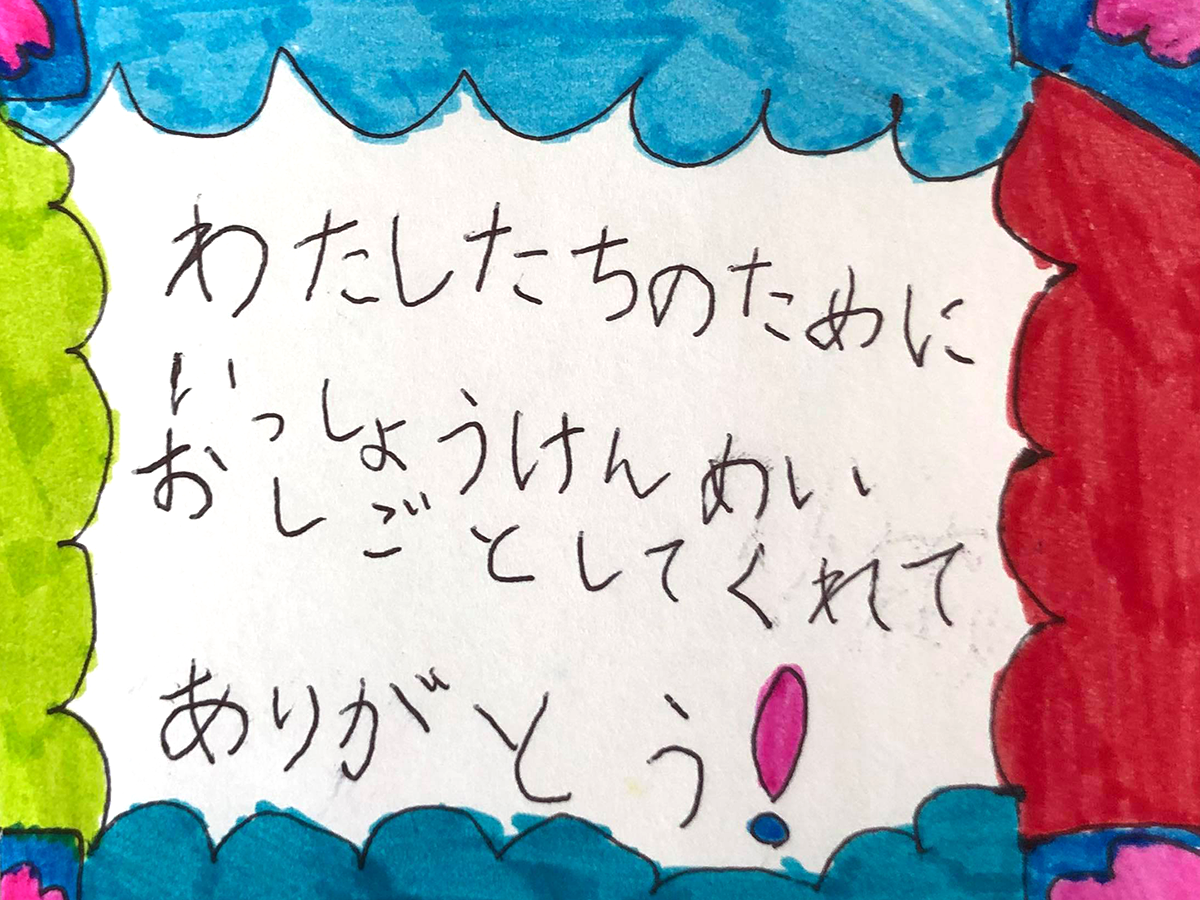 わたしたちのために
いっしょうけんめい
おしごとしてくれて
ありがとう!